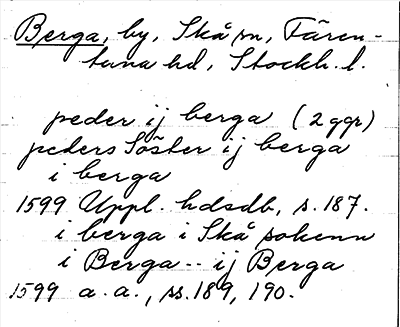 Berga, by, Skå sn, Fären-
tuna hd, Stockh. l.
peder ij berga (2 ggr)
peders Söster ij berga
i berga
1599 Uppl. hdsdb, s. 187.
i berga i Skå sokenn
i Berga -- ij Berga
1599 a. a., ss. 189, 190.